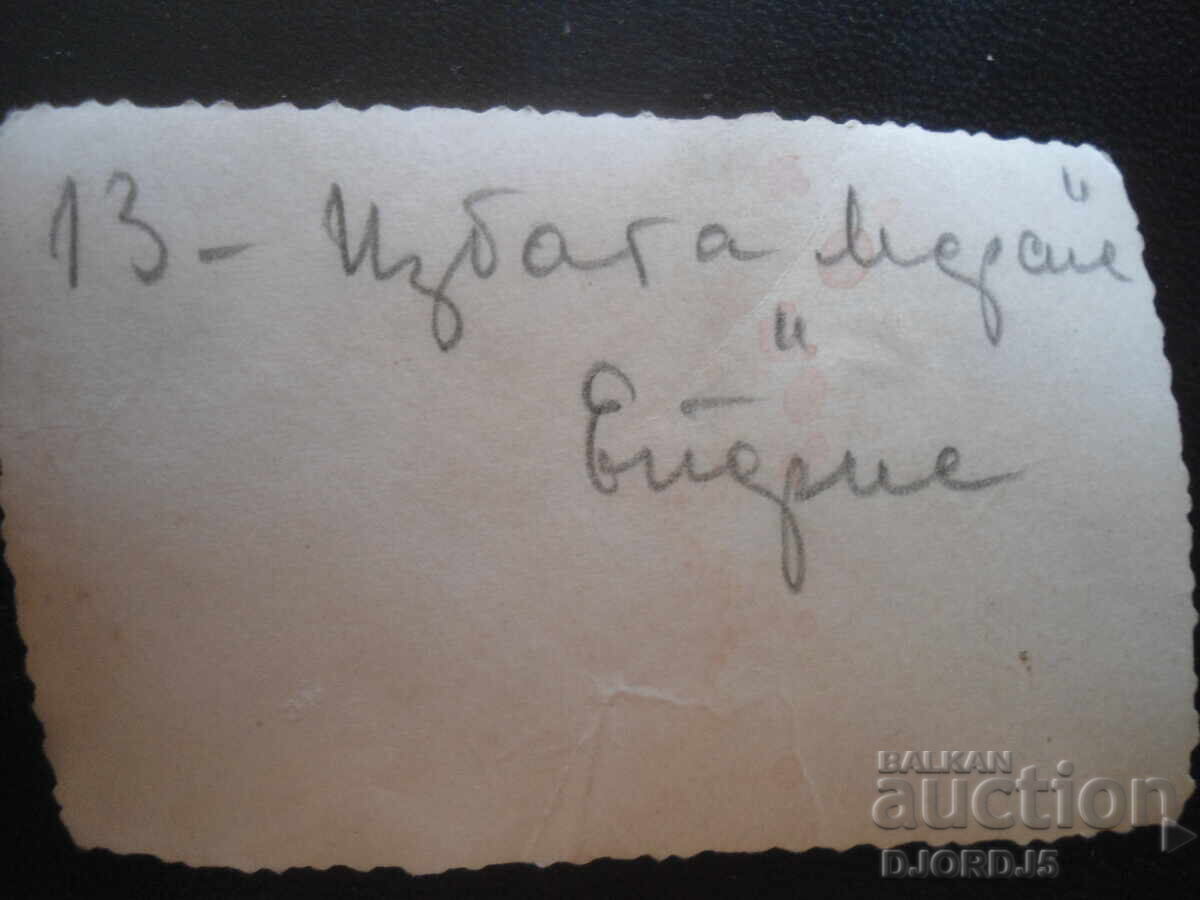 13 - Избата „Мерсие“
Еперне
BALKAN
auction
DJORDJ5